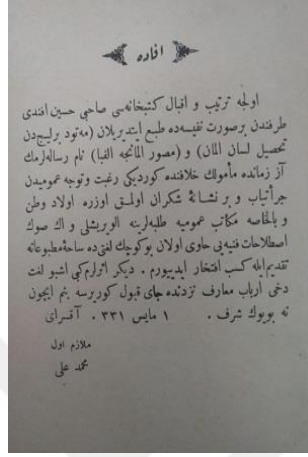 افاده
اولجه ترتيب و اقبال كتبخانه‌سى صاحبى حسين افندى
طرفندن برصورت نفيسه‌ده طبع ايتديريلان (مه‌تود برليچ‌دن
تحصيل لسان المان) و (مصور المانجه الفبا) نام رساله‌لرمك
آز زمانده مأمولك خلافنده كورديكى رغبت وتوجه عموميدن
جرأتياب و بر نشانهٔ شكران اولمق اوزره اولاد وطن
و بالخاصه مكاتب عموميه طلبه‌لرينه الويريشلى و اك صوك
اصطلاحات فنيه‌يى حاوى اولان بوكوچك لغتى‌ده ساحهٔ مطبوعاته
تقديم‌ايله كسب افتخار ايدييورم . ديكر اثرلرم‌كبى اشبو لغت
دخى ارباب معارف نزدنده جاى قبول كوريرسه بنم ايچون
نه بويوك شرف . ١ مايس ٣٣١ . آقسراى
ملازم اول
محمد على